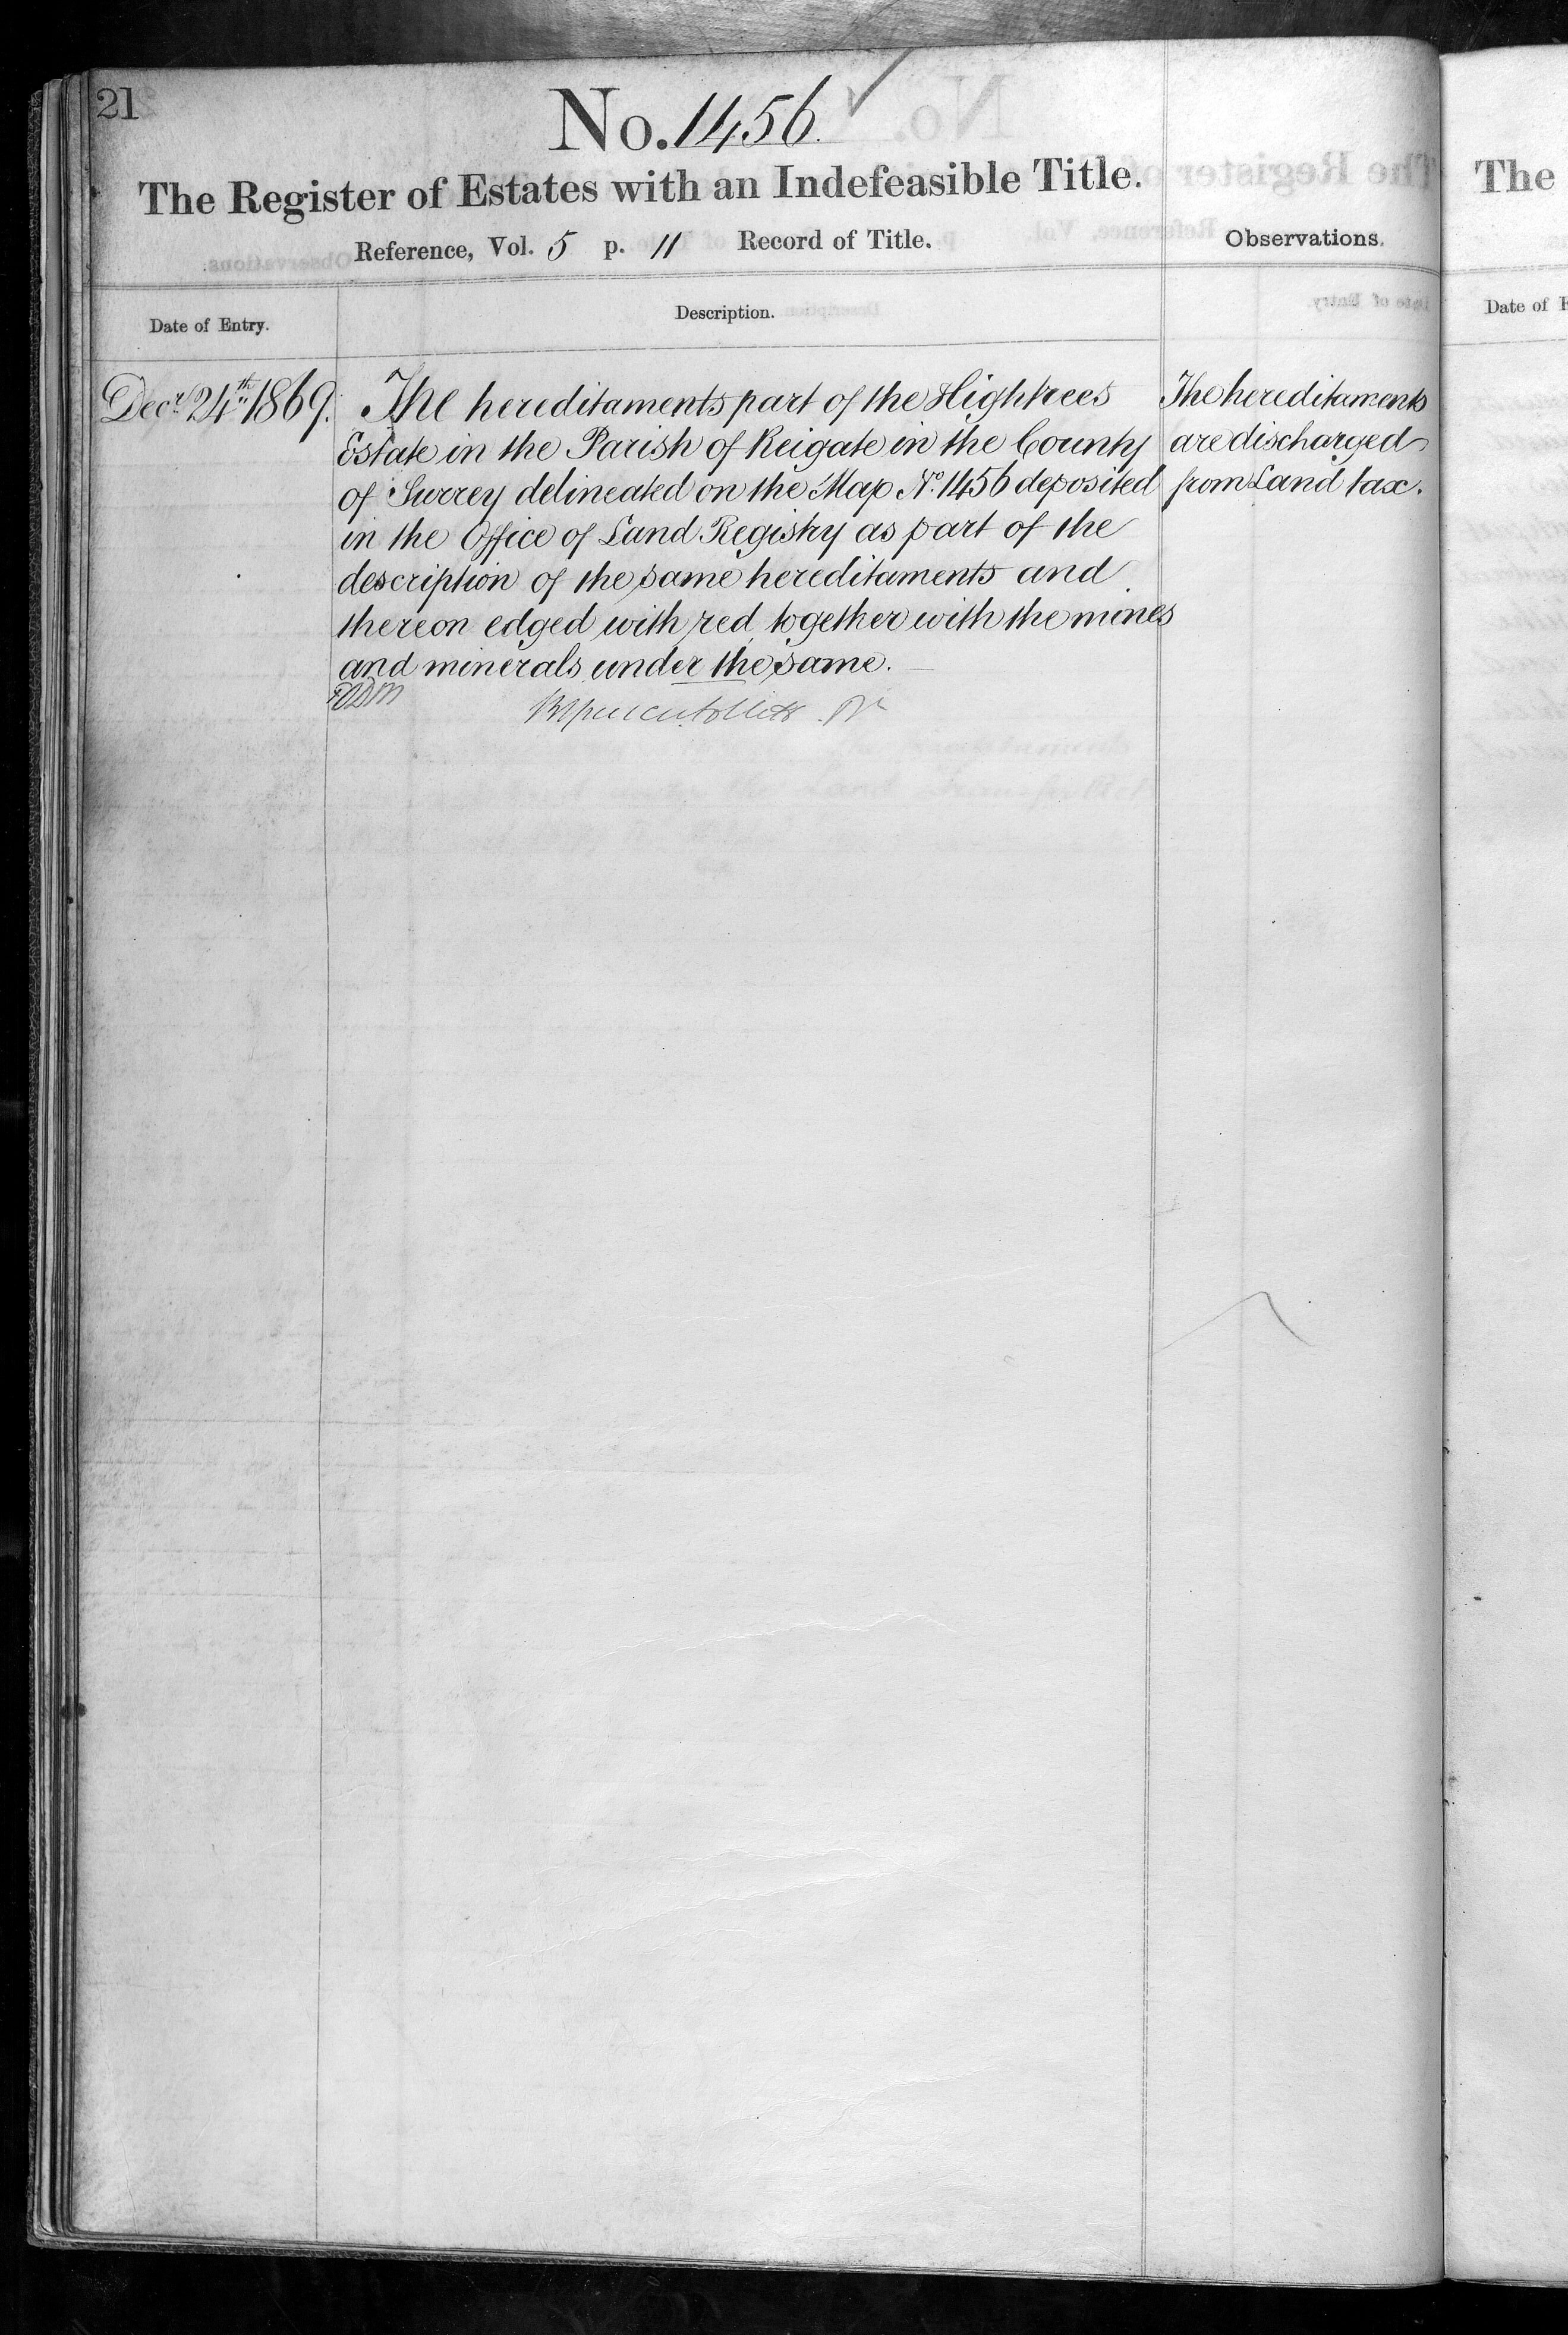 21
No. 1456.
The Register of Estates with an Indefeasible Title.
Reference, Vol. 5 p. 11 Record of Title.
Observations.
Date of Entry.
Description.
Decr. 24th 1869.
The hereditaments part of the Hightrees
Estate in the Parish of Reigate in the County
of Surrey delineated on the Map No. 1456 deposited
in the Office of Land Registry as part of the
description of the same hereditaments and
thereon edged with red together with the mines
and minerals under the same.
The hereditaments
are discharged
from Land tax.
The
Date of E